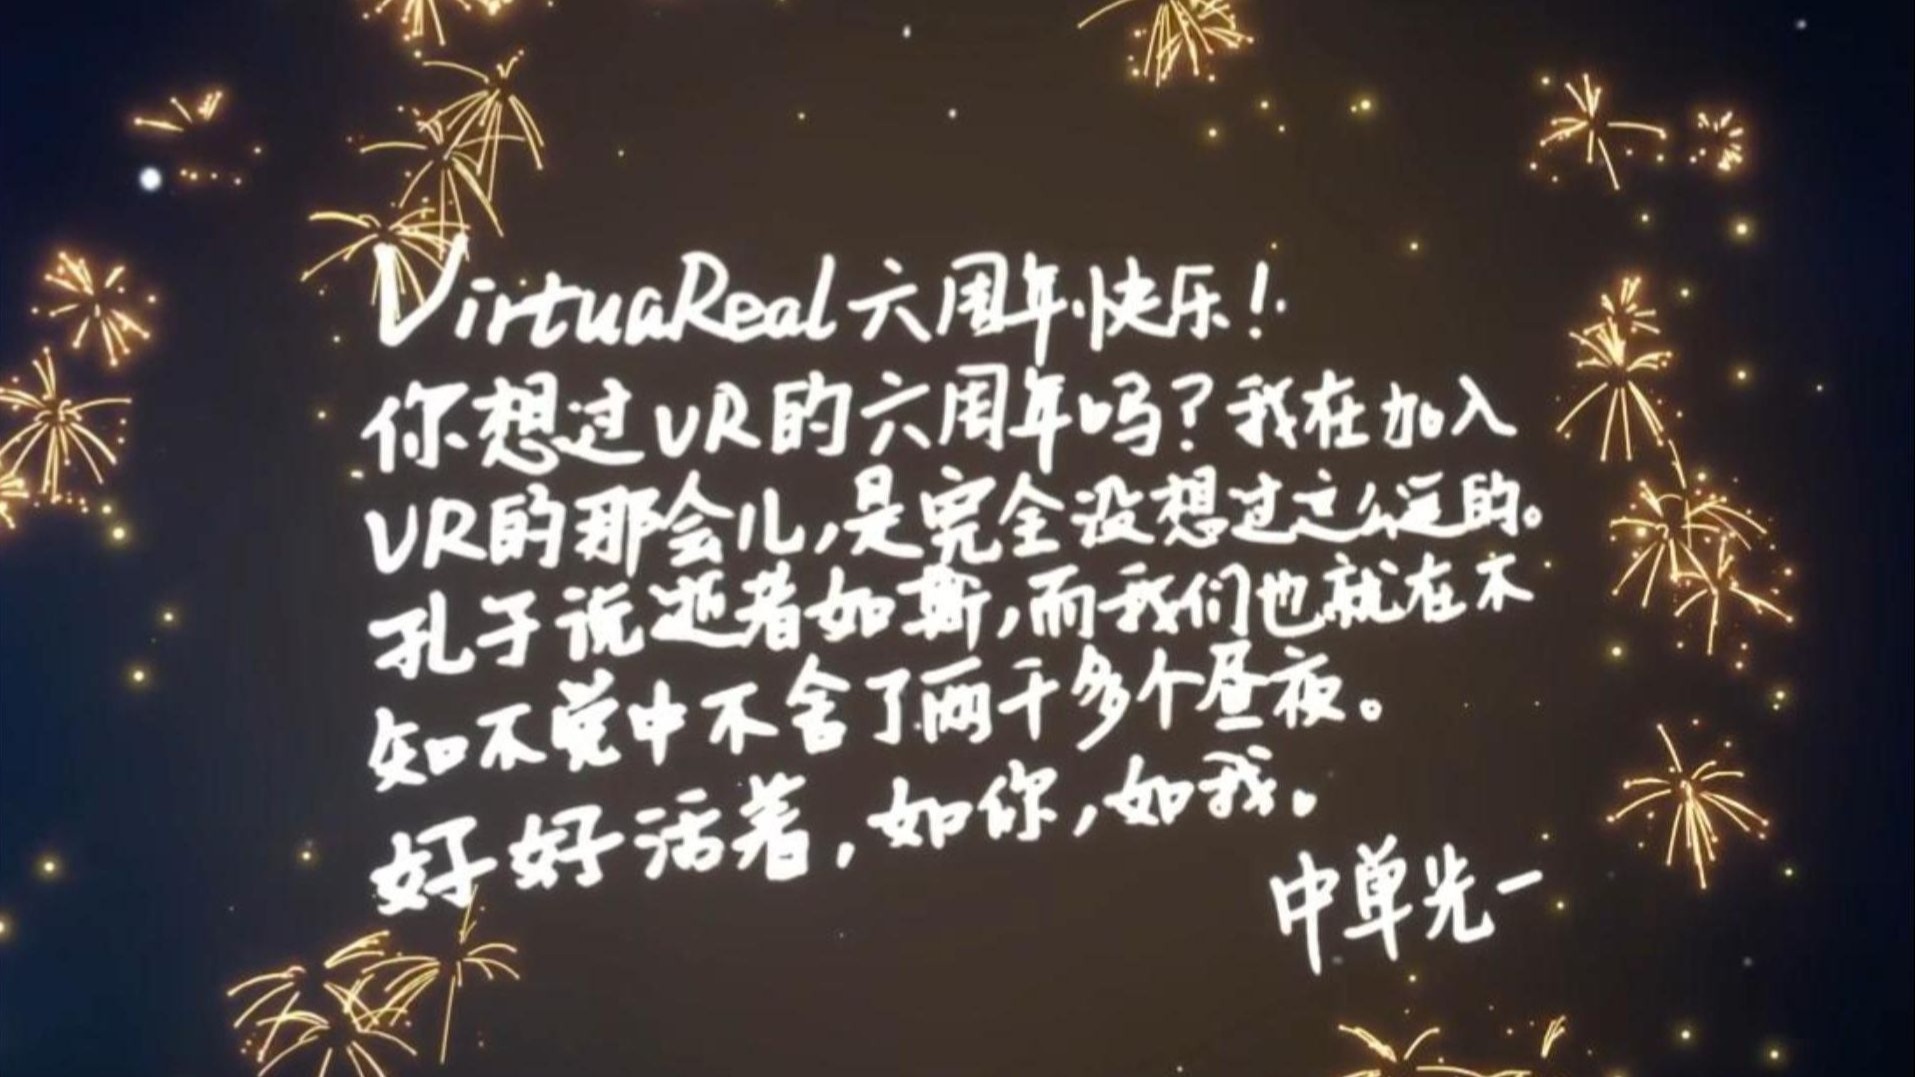 VirtuaReal六周年快乐！
你想过VR的六周年吗？我在加入
VR的那会儿，是完全没想过这么远的。
孔子说逝者如斯，而我们也就在不
知不觉中不舍了两千多个昼夜。
好好活着，如你，如我。
中单光一